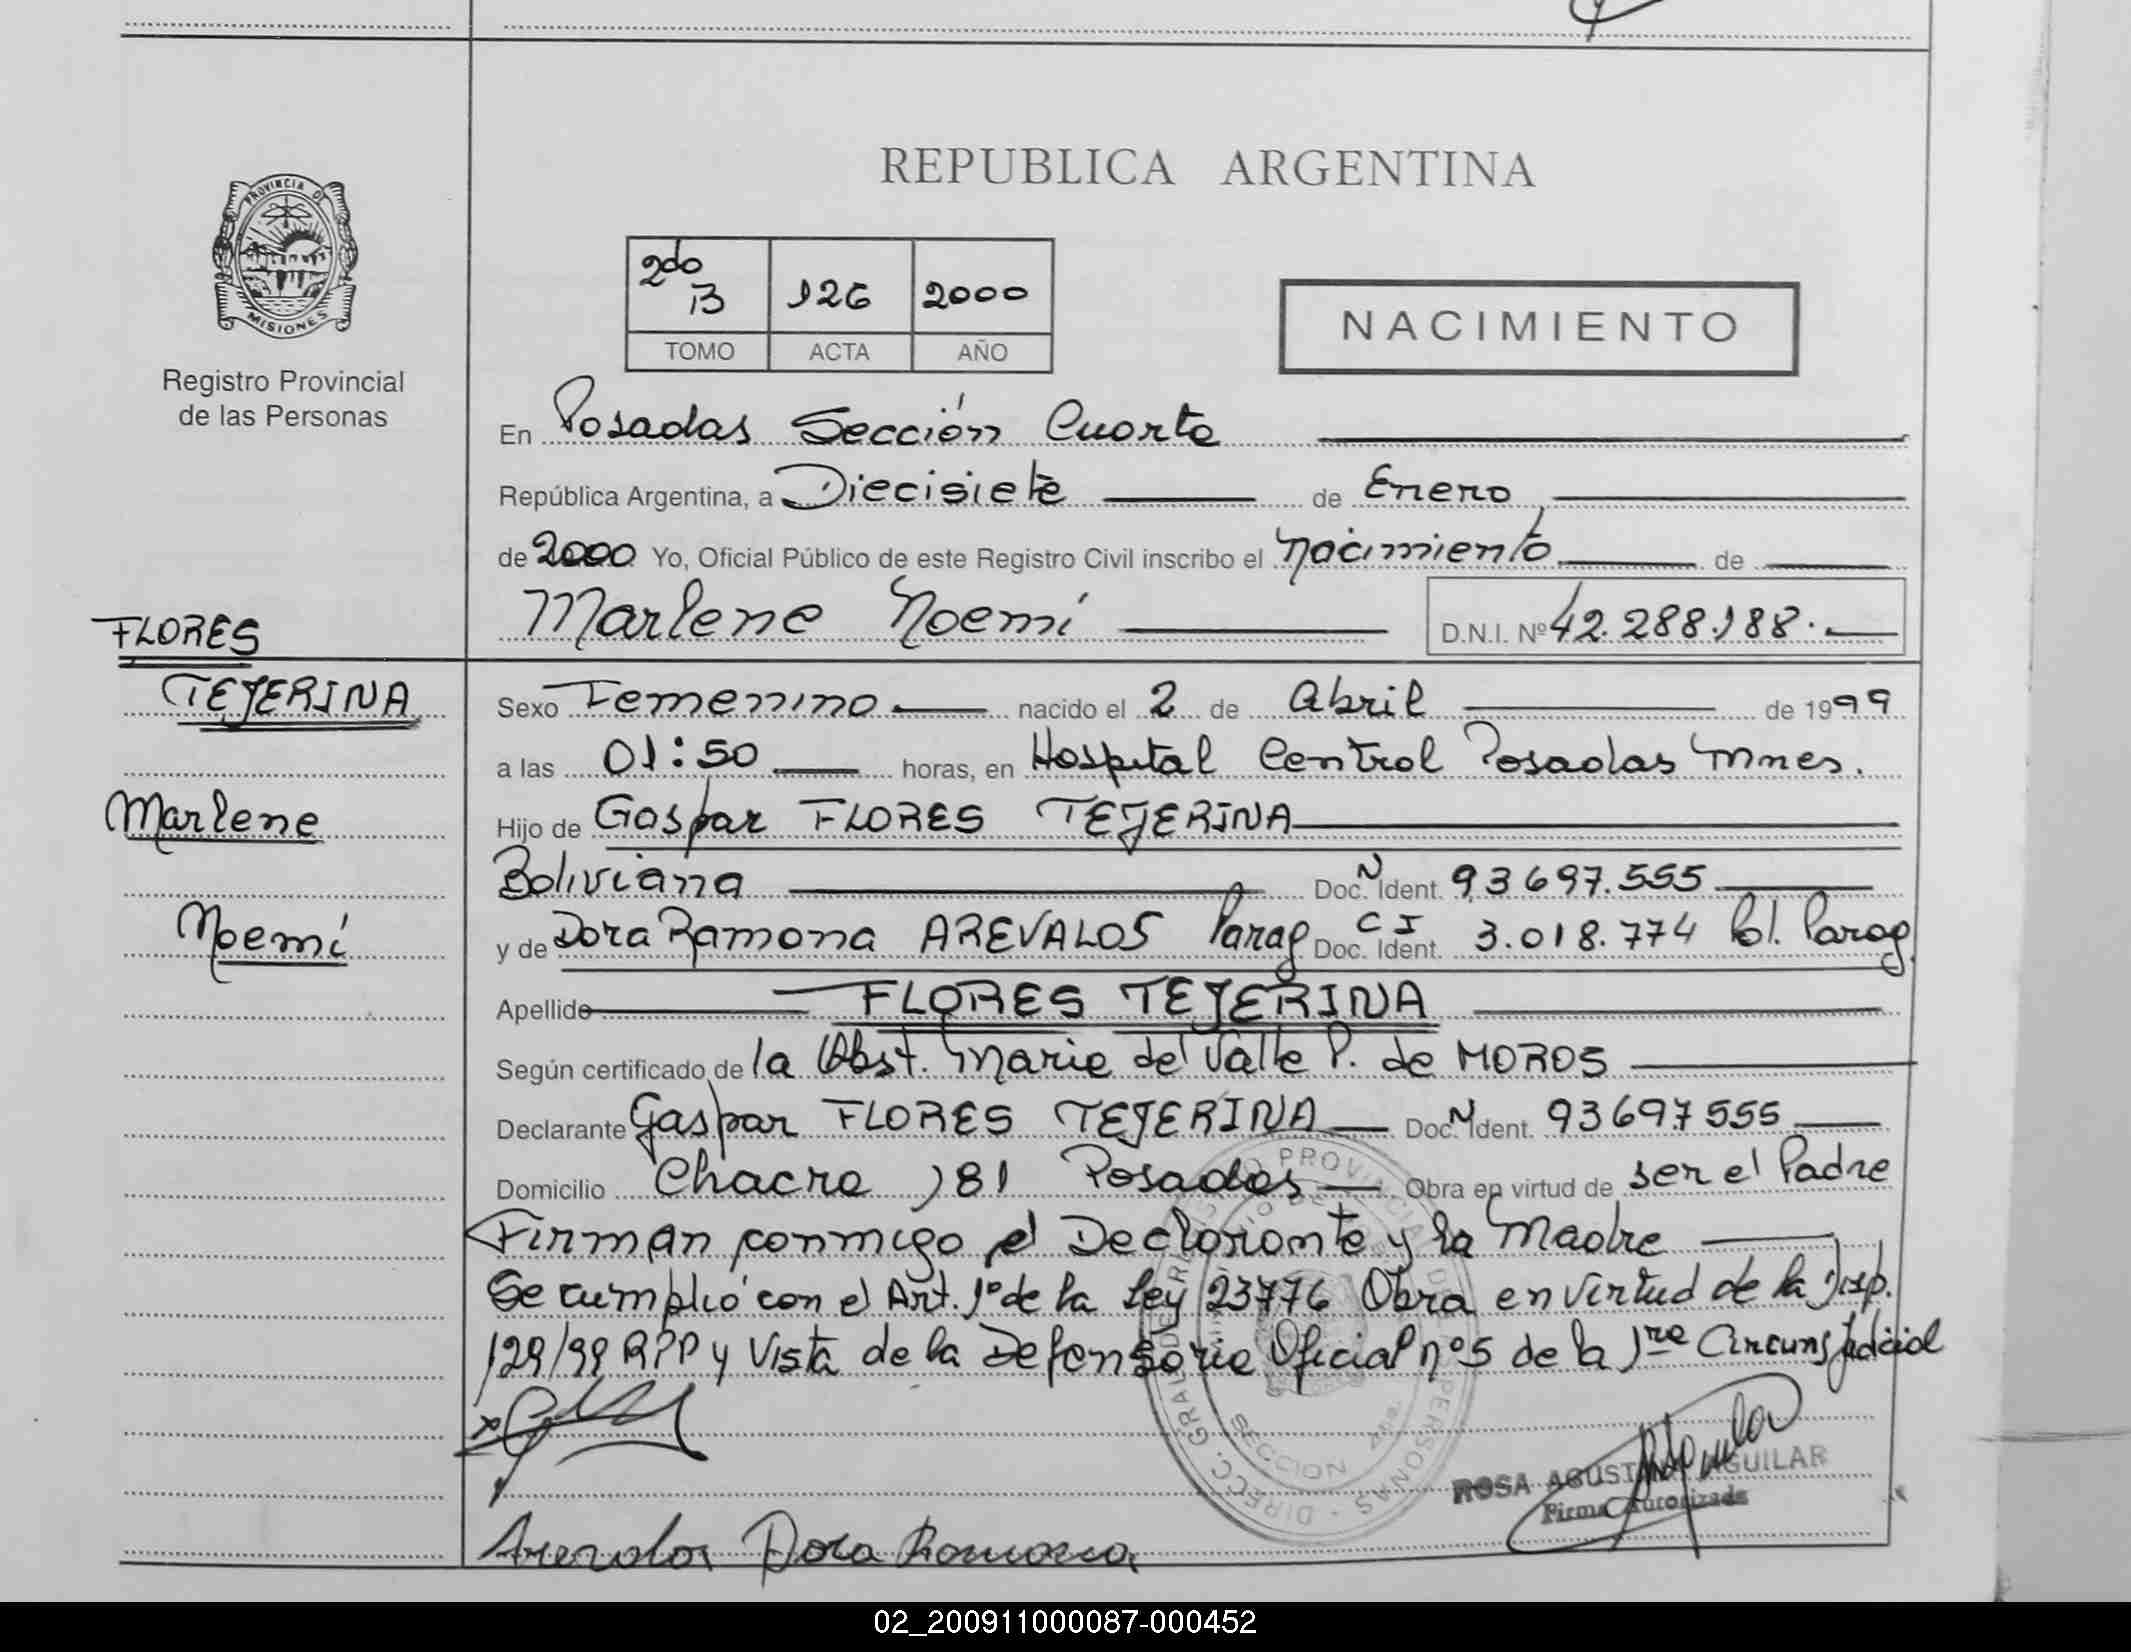 REPUBLICA ARGENTINA
PROVINCIA DE
MISIONES
Registro Provincial
de las Personas
2do B 126 2000
TOMO ACTA AÑO
NACIMIENTO
En Posadas Sección Cuarta
República Argentina, a Diecisiete de Enero
de 2000 Yo, Oficial Público de este Registro Civil inscribo el nacimiento de
Marlene Noemí D.N.I. Nº 42.288.188.
FLORES
TEJERINA
Marlene
Noemí
Sexo Femenino nacido el 2 de Abril de 1999
a las 01:50 horas, en Hospital Central Posadas Mnes.
Hijo de Gaspar FLORES TEJERINA
Boliviana Doc. N Ident. 93697.555
y de Dora Ramona AREVALOS Parag Doc. CI Ident. 3.018.774 Pol. Parag.
Apellido FLORES TEJERINA
Según certificado de la Obst. Maria del Valle P. de MOROS
Declarante Gaspar FLORES TEJERINA Doc. N Ident. 93697555
Domicilio Chacra 181 Posadas Obra en virtud de ser el Padre
Firman conmigo el Declarante y la Madre
Se cumplió con el Art. 1º de la Ley 23776 Obra en virtud de la Disp.
129/99 RPP y Vista de la Defensoria Oficial nº5 de la 1ra Circuns Judicial
ROSA AGUSTINA AGUILAR
Firma Autorizada
Arevalos Dora Ramona
02_200911000087-000452